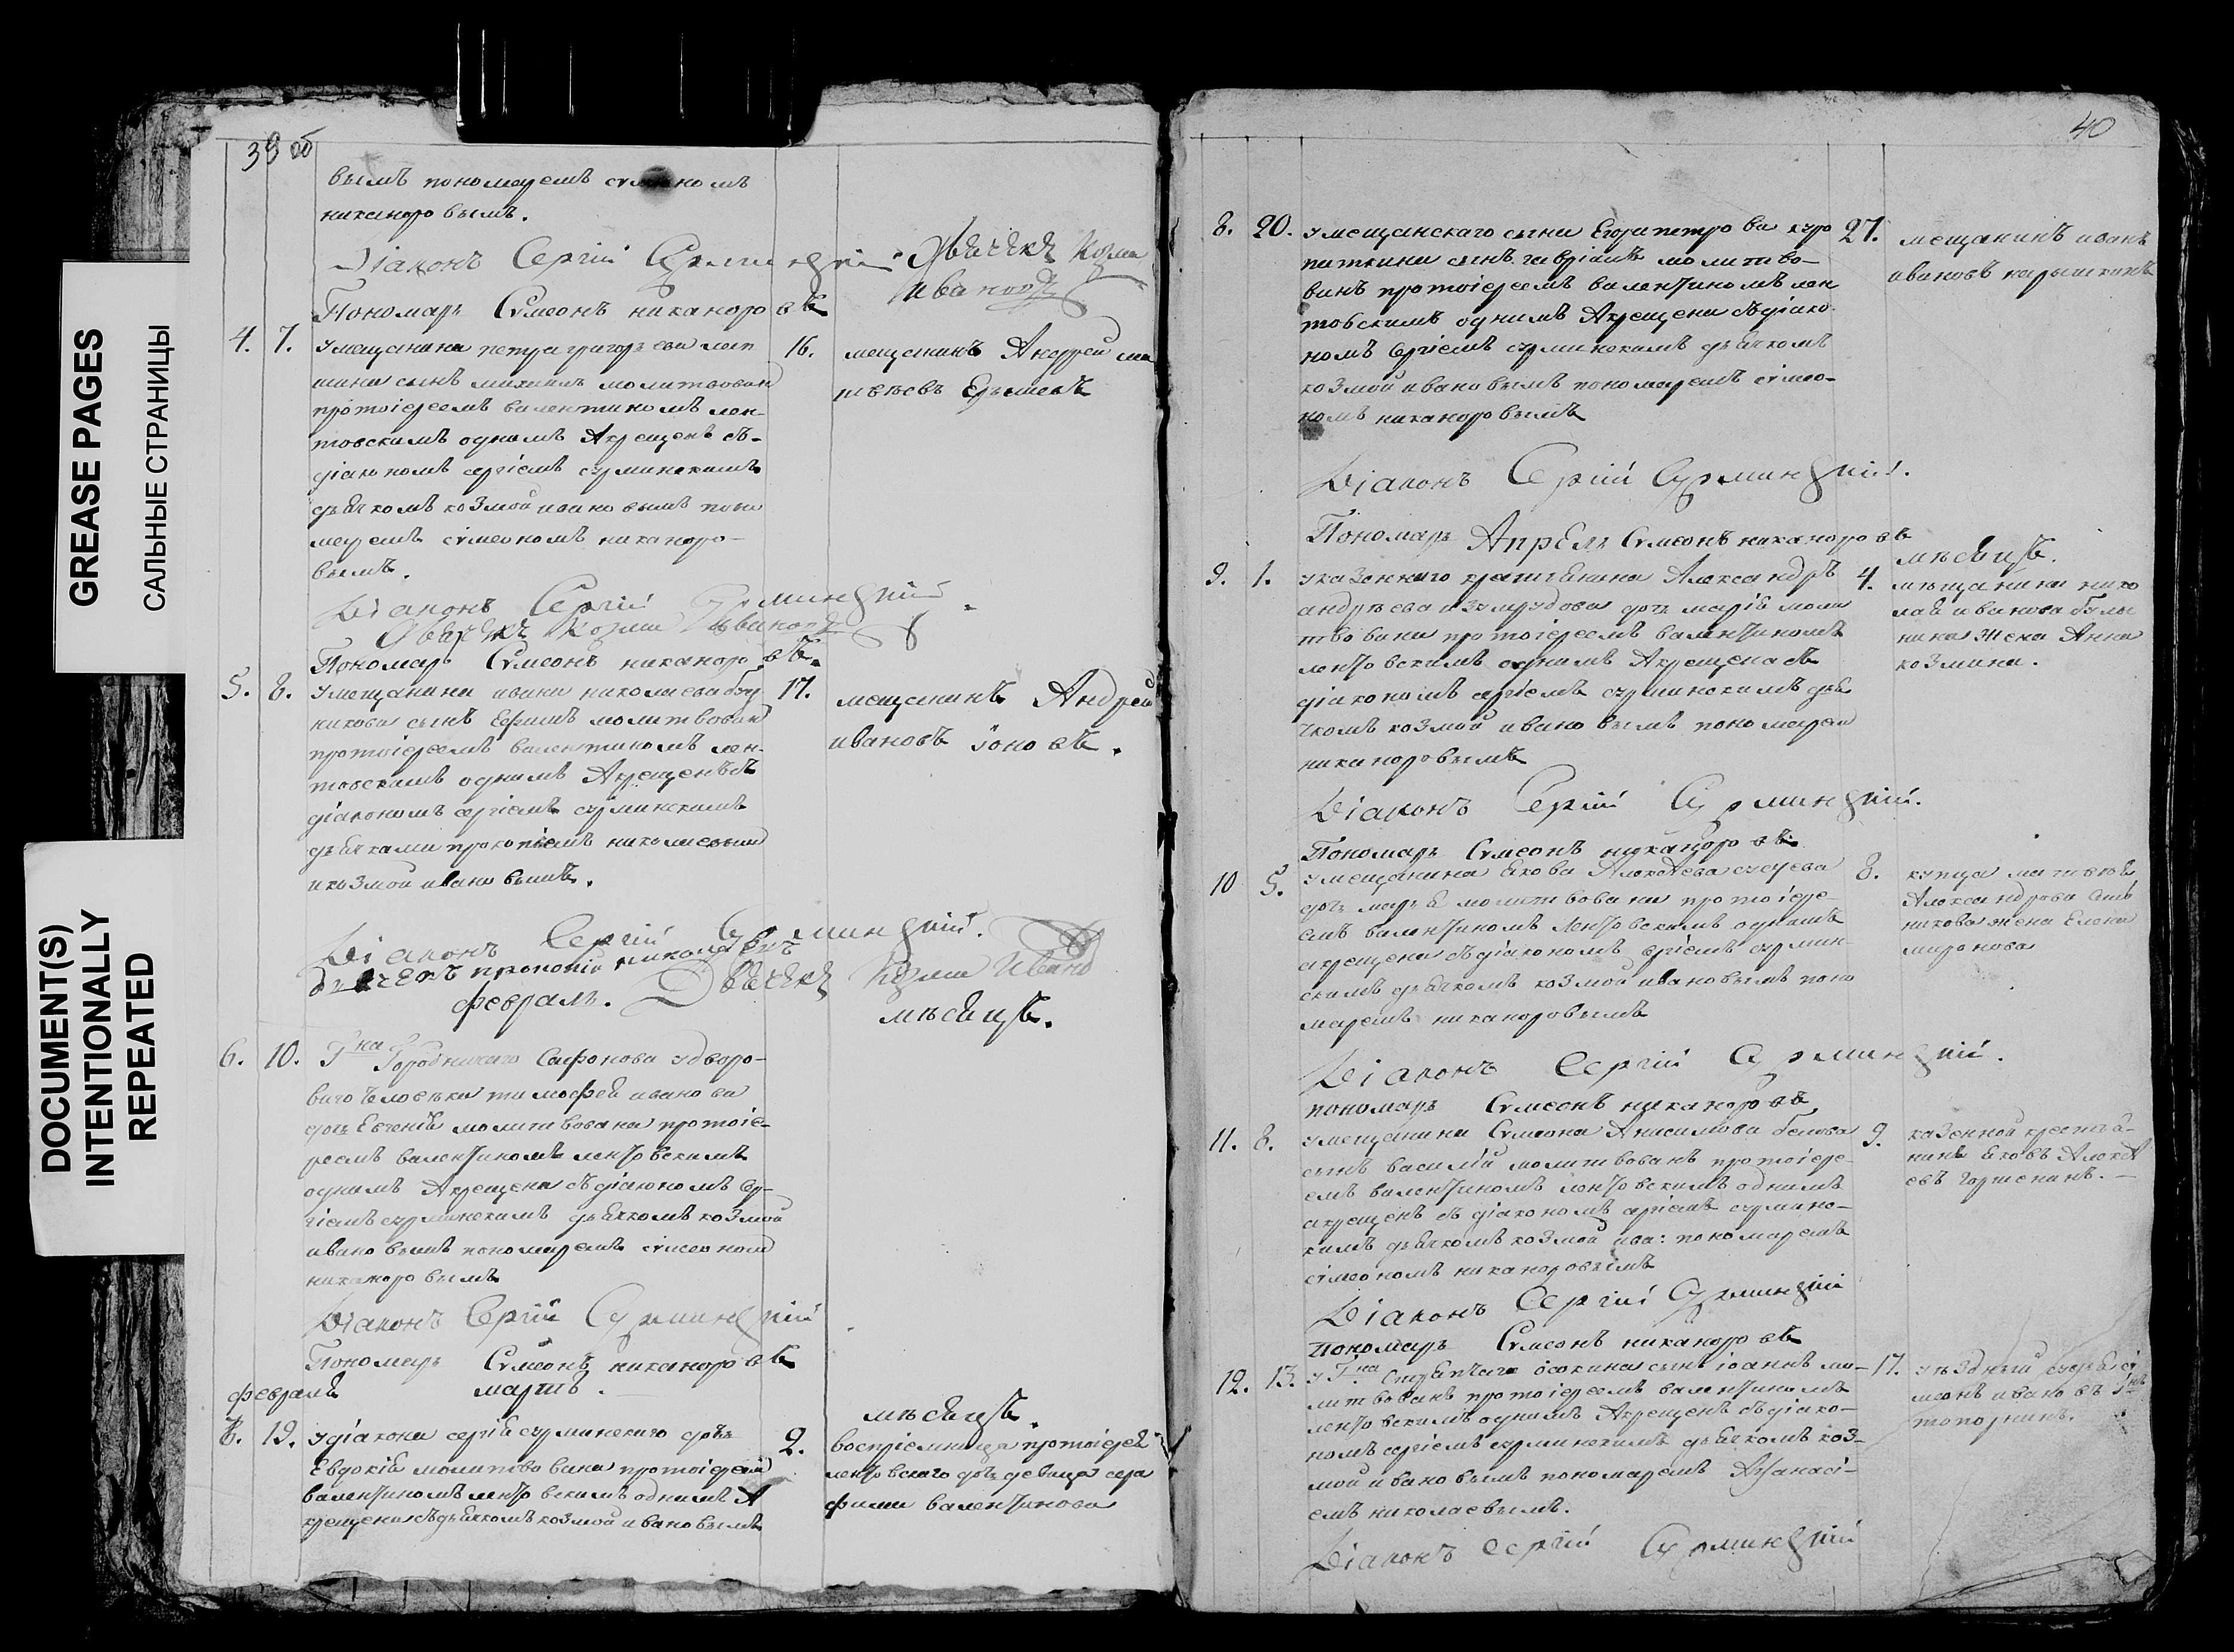 GREASE PAGES
САЛЬНЫЕ СТРАНИЦЫ
DOCUMENT(S)
INTENTIONALLY
REPEATED
39 об
вымъ пономаремъ
никаноровымъ.
Діаконъ Сергій Сурминскій Дьячекъ Козма
Ивановъ
Пономарь Сѵмеонъ никаноровъ
4. 7. у мещанина петра григорьева
сынъ михаилъ молитвован
протоіереемъ валентиномъ лен-
товскимъ однимъ А крещенъ съ-
діакономъ сергіемъ сурминскимъ
дьячкомъ козмой ивановымъ поно
маремъ сѵмеономъ никаноро-
вымъ.
16. мещанинъ Андрей ма
твѣевъ
Діаконъ Сергій Сурминскій
Дьячекъ Козма Ивановъ
Пономарь Сѵмеонъ никаноровъ.
5. 8. у мещанина ивана николаева
сынъ Ефимъ молитвован
протоіереемъ валентиномъ лен-
товскимъ однимъ А крещенъ съ
діакономъ сергіемъ сурминскимъ
дьячками прокопіемъ николаевым
и козмой ивановымъ.
17. мещанинъ Андрей
ивановъ іоновъ.
Діаконъ Сергій Сурминскій.
дьячекъ прокопій николаевъ Дьячекъ Козма Ивано
февраль. мѣсяцъ.
6. 10. Гна Городничаго Сафонова у дворо-
ваго человѣка тимофея иванова
дочь Евгенія молитвована протоіе-
реемъ валентиномъ лентовскимъ
однимъ А крещена съ діакономъ Сер-
гіемъ сурминскимъ дьячкомъ козмой
ивановымъ пономаремъ сѵмеоном
никаноровымъ
Діаконъ Сергій Сурминскій
Пономарь Сѵмеонъ никаноровъ
февраля мартъ. мѣсяцъ.
19. у діакона сергія сурминскаго дочь
Евдокія молитвована протоіереем
валентиномъ лентовскимъ однимъ А
крещена съ дьячкомъ козмой ивановымъ
2. воспріемница протоіерея
лентовскаго дочь девица сера
фима валентинова
40
8. 20. у мещанскаго сына Егора петрова
сынъ гавріилъ молитво-
ванъ протоіереемъ валентиномъ лен
товскимъ однимъ А крещенъ съ діако
номъ Сергіемъ сурминскимъ дьячкомъ
козмой ивановымъ пономаремъ сѵмео-
номъ никаноровымъ
27. мещанинъ иванъ
ивановъ
Діаконъ Сергій Сурминскій.
Пономарь Сѵмеонъ никаноровъ
Апрель мѣсяцъ.
9. 1. у казеннаго крестьянина Александра
андрѣева изумрудова дочь марія моли
твована протоіереемъ валентиномъ
лентовскимъ однимъ А крещена съ
діакономъ сергіемъ сурминскимъ дья
чкомъ козмой ивановымъ пономарем
никаноровымъ
4. мѣщанина нико
лая иванова
жена Анна
козмина.
Діаконъ Сергій Сурминскій.
Пономарь Сѵмеонъ никаноровъ
10 5. у мещанина Якова Алексѣева
дочь марья молитвована протоіере-
емъ валентиномъ Лентовскимъ однимъ
а крещена съ діакономъ сергіемъ сурмин-
скимъ дьячкомъ козмой ивановымъ поно
маремъ никаноровымъ
8. купца матвѣя
Александрова
жена Елена
миронова
Діаконъ Сергій Сурминскій.
пономарь Сѵмеонъ никаноровъ
11. 8. у мещанина Сѵмеона Анисимова белова
сынъ василій молитвованъ протоіере-
емъ валентиномъ лентовскимъ однимъ
а крещенъ съ діакономъ сергіемъ сурминс-
кимъ дьячкомъ козмой ива: пономаремъ
сѵмеономъ никаноровымъ
9. казенной крестья-
нинъ Яковъ Алексѣ
евъ
Діаконъ Сергій Сурминскій
пономарь Сѵмеонъ никаноровъ
12. 13. у Гна Стряпчаго осокина сынъ іоаннъ мо-
литвованъ протоіереемъ валентиномъ
лентовскимъ однимъ А крещенъ съ діако-
номъ сергіемъ сурминскимъ дьячкомъ коз-
мой ивановымъ пономаремъ Аѳанасі-
емъ николаевымъ.
17. уѣздный судья сѵ
меонъ ивановъ Гнъ
топорнинъ.
Діаконъ Сергій Сурминскій